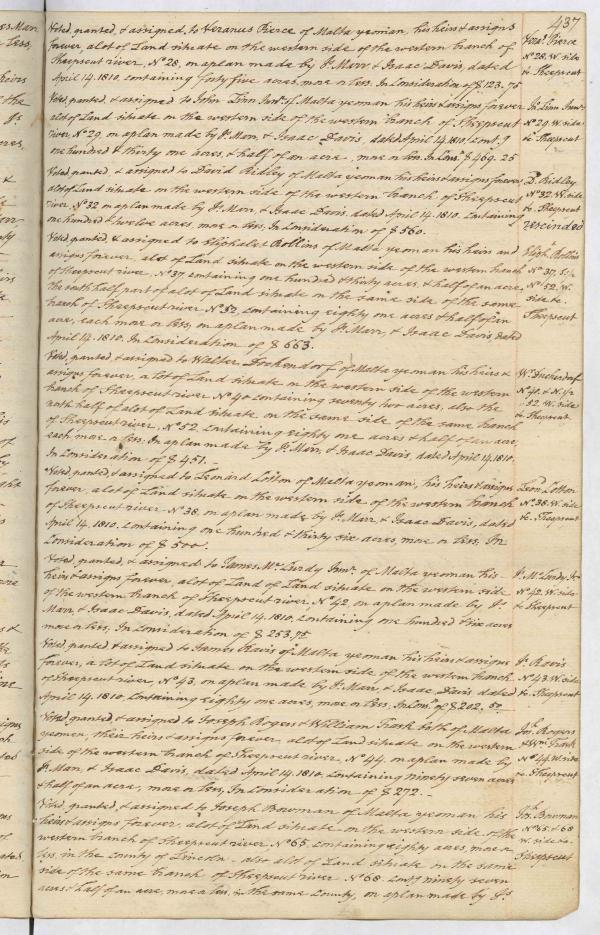 437
Voted, granted, & assigned, to Veranus Pierce of Malta yeoman, his heirs & assigns
forever, a lot of Land situate on the western side of the western branch of
Sheepscut river, No 28, on a plan made by Js. Marr & Isaac Davis, dated
April 14. 1810, containing forty five acres, more or less. In Consideration of $ 123.75
Vera. Pierce
No 28. W. side
Sheepscut
Voted, granted, & assigned to John Linn Junr. of Malta yeoman his heirs & assigns forever
a lot of Land situate on the western side of the western branch of Sheepscut
river, No 29, on a plan made by Js. Marr, & Isaac Davis, dated April 14. 1810, Contg.
one hundred & thirty one acres, & half of an acre, more or less. In Cons. $ 469.25
Jn. Linn Junr.
No 29. W. side
Sheepscut
Voted, granted, & assigned to David Ridley of Malta yeoman his heirs & assigns forever
a lot of Land situate on the western side of the western branch of Sheepscut
river, No 32 on a plan made by Js. Marr, & Isaac Davis. dated April 14. 1810. Containing
one hundred & twelve acres, more or less, In Consideration of $ 560.
D. Ridley
No 32. W. side
Sheepscut
Recinded
Voted, granted, & assigned to Eliphalet Rollins of Malta yeoman his heirs and
assigns forever, a lot of Land situate on the western side of the western branch
of Sheepscut river, No 37, containing one hundred & thirty acres, & half of an acre,
the south half part of a lot of Land situate on the same side of the same
branch of Sheepscut river No 52, containing eighty one acres & half of an
acre, each more or less, on a plan made by Js. Marr, & Isaac Davis, dated
April 14. 1810. In Consideration of $ 663.
Eliph. Rollins
No 37, S. 1/2
No 52. W.
side
Sheepscut
Voted, granted & assigned to Walter Dockendorf of Malta yeoman his heirs &
assigns forever, a lot of Land situate on the western side of the western
branch of Sheepscut river No 40 containing seventy two acres, also the
north half of a lot of Land situate on the same side of the same branch
of Sheepscut river, No 52, Containing eighty one acres & half of an acre,
each more or less, on a plan made by Js. Marr, & Isaac Davis, dated April 14. 1810.
In Consideration of $ 451.
No 40. & N. 1/2
52. W. side
Sheepscut
Voted, granted, & assigned to Leonard Cotton of Malta yeoman, his heirs & assigns
forever, a lot of Land situate on the western side of the western branch
of Sheepscut river No 38, on a plan made by Js. Marr, & Isaac Davis, dated
April 14. 1810. Containing one hundred & thirty six acres, more or less, In
Consideration of $ 500.
Leon. Cotton
No 38. W. side
Sheepscut
Voted, granted, & assigned to James Mc.Curdy Junr. of Malta yeoman his
heirs & assigns forever, a lot of Land of Land situate on the western side
of the western branch of Sheepscut river, No 42, on a plan made by Js.
Marr, & Isaac Davis, dated April 14. 1810. Containing one hundred & six acres
more or less, In Consideration of $ 253.75
Js. McCurdy Jr
No 42. W. side
Sheepscut
Voted, granted & assigned to James Rovis of Malta yeoman his heirs & assigns
forever, a lot of Land situate on the western side of the western branch
of Sheepscut river, No 43, on a plan made by Js. Marr, & Isaac Davis dated
April 14. 1810, Containing eighty one acres, more or less, In Cons. of $ 202.50
Js. Rovis
No 43. W. side
Sheepscut
Voted, granted & assigned to Joseph Rogers & William Trask both of Malta
yeomen, their heirs & assigns forever, a lot of Land situate on the western
side of the western branch of Sheepscut river, No 44, on a plan made by
Js. Marr, & Isaac Davis, dated April 14. 1810. Containing ninety seven acres
& half of an acre, more or less, In Consideration of $ 272.
Jos. Rogers
& Wm. Trask
No 44. W. side
Sheepscut
Voted, granted & assigned to Joseph Bowman of Malta yeoman his
heirs & assigns forever, a lot of Land situate on the western side of the
western branch of Sheepscut river No 65, containing eighty acres, more or
less, in the County of Lincoln. also a lot of Land situate on the same
side of the same branch of Sheepscut river No 68. Contg. ninety seven
acres & half of an acre, more or less, in the same County, on a plan made by Js.
Jos. Bowman
No 65. & 68
W. side
Sheepscut